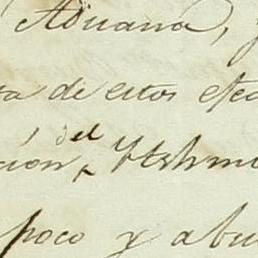 Aduana,
de estos efec
ción del Ysthm
poco y abu